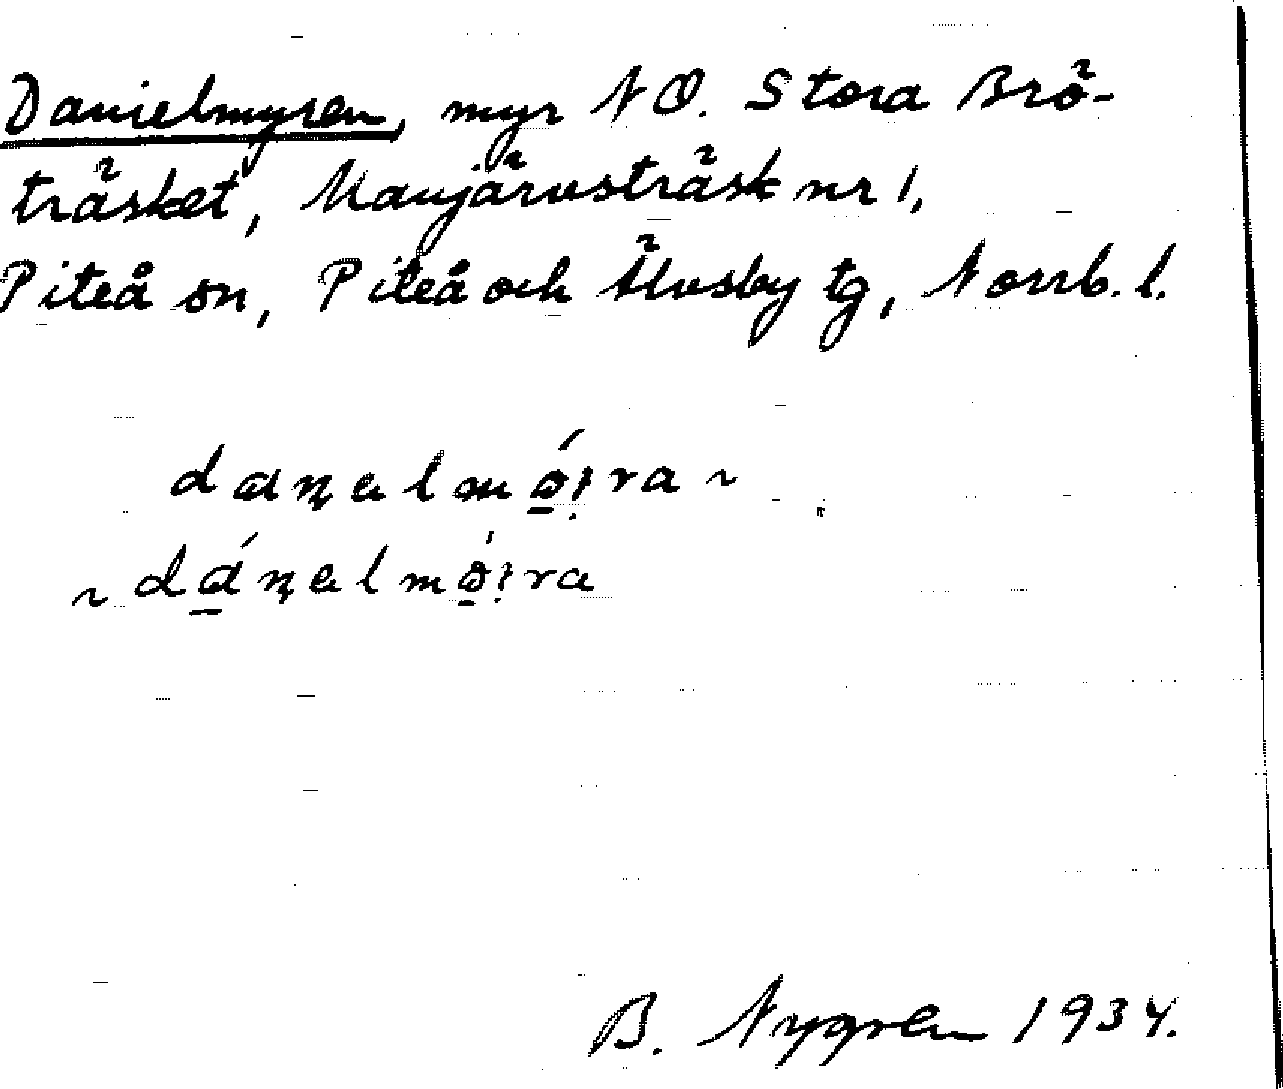 Danielmyren, myr NO. Stora Brö-
träsket, Manjärvsträsk nr 1,
Piteå sn, Piteå och Älvsby tg, Norrb. l.
danelmó̱i̯ra ~
~ dá̱nelmó̱i̯ra
B. Nygren 1934.